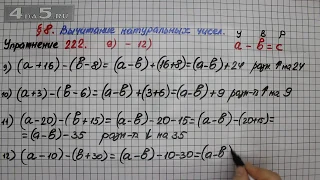 4ДЗ5.RU
§8. Вычитание натуральных чисел.
Упражнение 222. 9) - 12)
У В Р
a - в = c
9) (a+16)-(в-8)=(a-в)+(16+8)=(a-в)+24 разн ↑ на 24
10) (a+3)-(в-6)=(a-в)+(3+6)=(a-в)+9 разн-ть ↑ на 9
11) (a-20)-(в+15)=(a-в)-20-15=(a-в)-(20+15)=
=(a-в)-35 разн-ть ↓ на 35
12) (a-10)-(в+30)=(a-в)-10-30=(a-в)